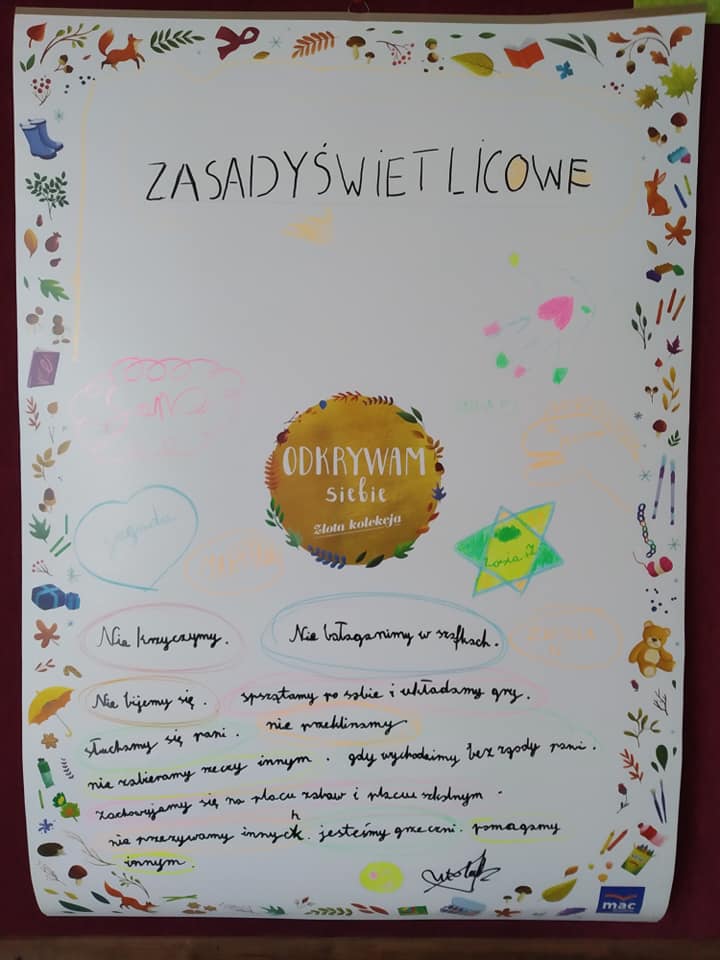 ZASADY ŚWIETLICOWE
ODKRYWAM
siebie
Złota kolekcja
jagoda
Zosia. Z
Nie krzyczymy. Nie bałaganimy w szafkach.
Nie bijemy się. sprzątamy po sobie i układamy gry.
słuchamy się pani. nie przeklinamy
nie zabieramy rzeczy innym. gdy wychodzimy bez zgody pani.
zachowujemy się na placu zabaw i placu szkolnym.
nie przezywamy innych. jesteśmy grzeczni. pomagamy
innym.
mac